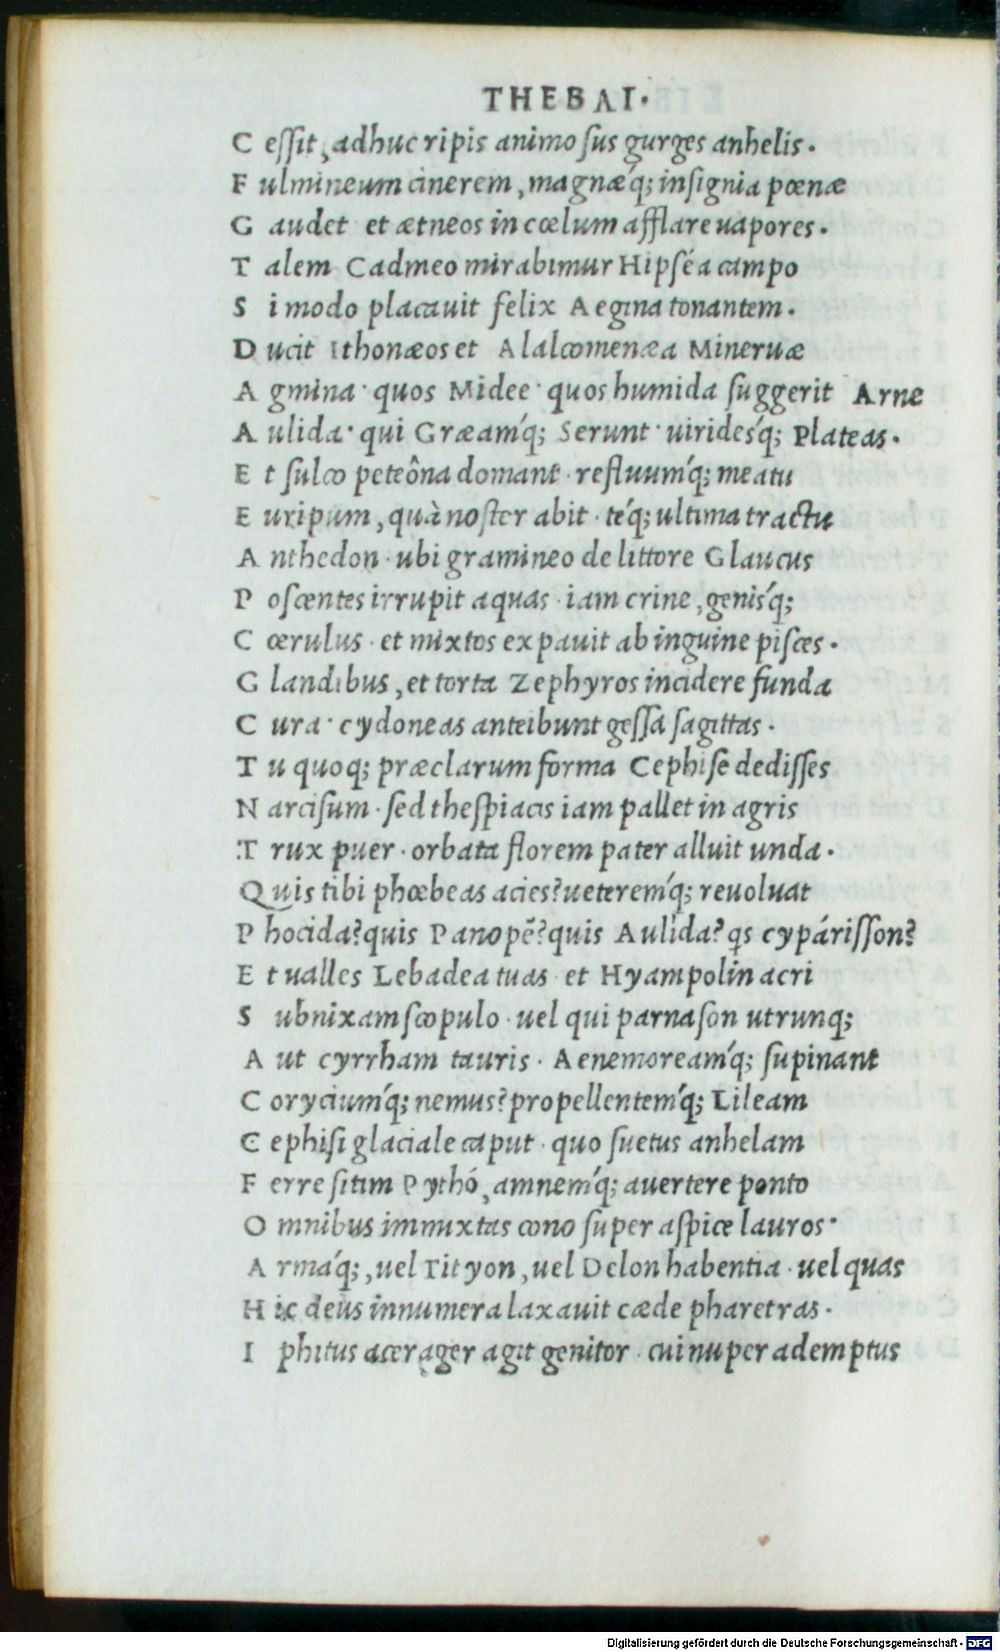 THEBAI.
C eſſit, adhuc ripis animoſus gurges anhelis.
F ulmineum cinerem, magnæq́; inſignia pœnæ
G audet et ætneos in cœlum afflare uapores.
T alem Cadmeo mirabimur Hipséa campo
S i modo placauit felix Aegina tonantem.
D ucit Ithonæos et Alalcomenæa Mineruæ
A gmina· quos Midee· quos humida ſuggerit Arne
A ulida· qui Græamq́; Serunt· uiridesq́; Plateas.
E t ſulco peteôna domant· refluumq́; meatu
E uripum, quà noſter abit· teq́; ultima tractu
A nthedon· ubi gramineo de littore Glaucus
P oſcentes irrupit aquas· iam crine, genisq́;
C œrulus· et mixtos expauit ab inguine piſces.
G landibus, et torta Zephyros incidere funda
C ura· cydoneas anteibunt geſſa ſagittas.
T u quoq; præclarum forma Cephiſe dediſſes
N arciſum· ſed theſpiacis iam pallet in agris
T rux puer· orbata florem pater alluit unda.
Q uis tibi phœbeas acies? ueteremq́; reuoluat
P hocida? quis Panopē? quis Aulida? qs cypáriſſon?
E t ualles Lebadea tuas· et Hyampolin acri
S ubnixam ſcopulo· uel qui parnaſon utrunq;
A ut cyrrham tauris· Aenemoreamq́; ſupinant
C oryciumq́; nemus? propellentemq́; Lileam
C ephiſi glaciale caput· quo ſuetus anhelam
F erre ſitim Pythó, amnemq́; auertere ponto
O mnibus immixtas cono ſuper aſpice lauros·
A rmaq́;, uel Tityon, uel Delon habentia· uel quas
H ic deus innumera laxauit cæde pharetras.
I phitus acer ager agit genitor· cui nuper ademptus
Digitalisierung gefördert durch die Deutsche Forschungsgemeinschaft - DFG